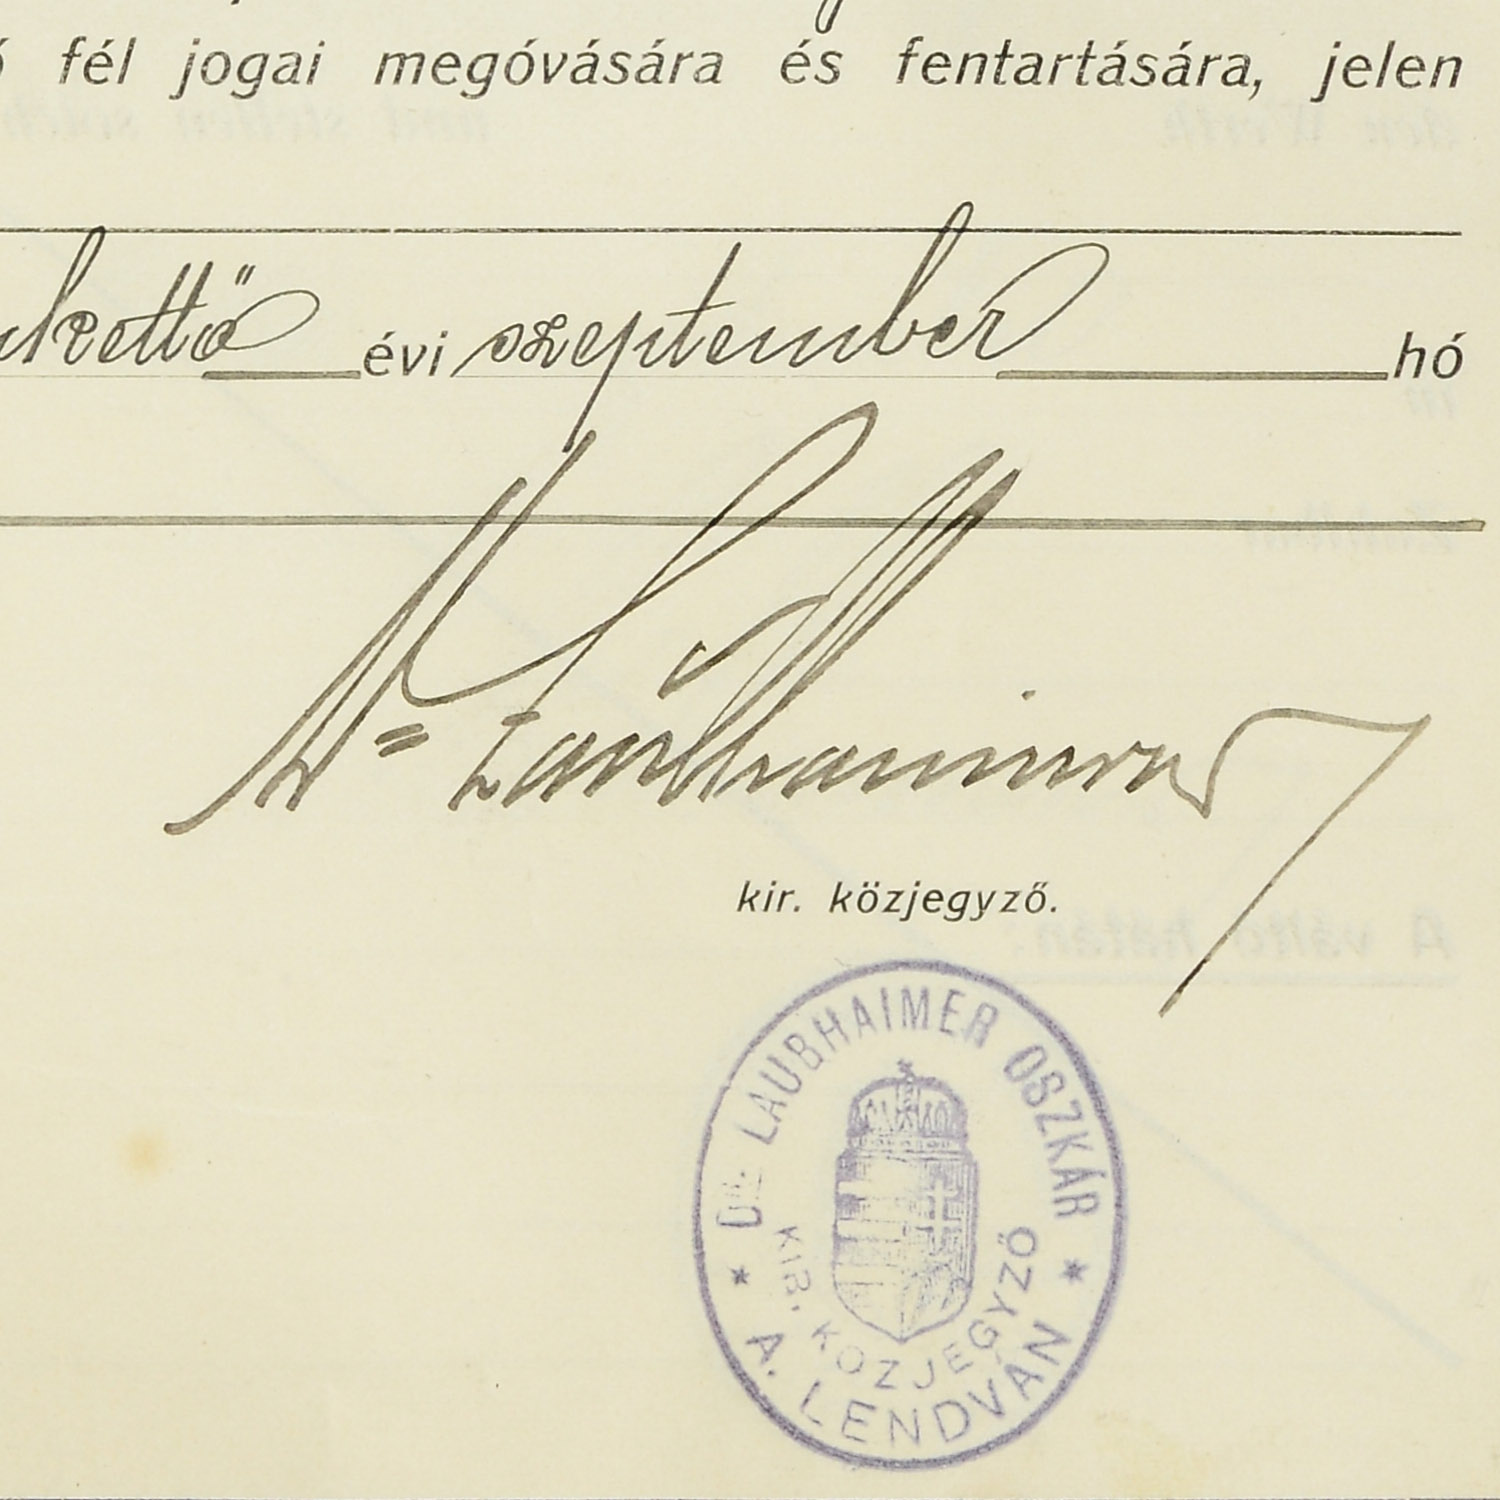 fél jogai megóvására és fentartására, jelen
évi szeptember hó
Dr Laubhaimer
kir. közjegyző.
DR LAUBHAIMER OSZKÁR
KIR. KÖZJEGYZŐ
A. LENDVÁN